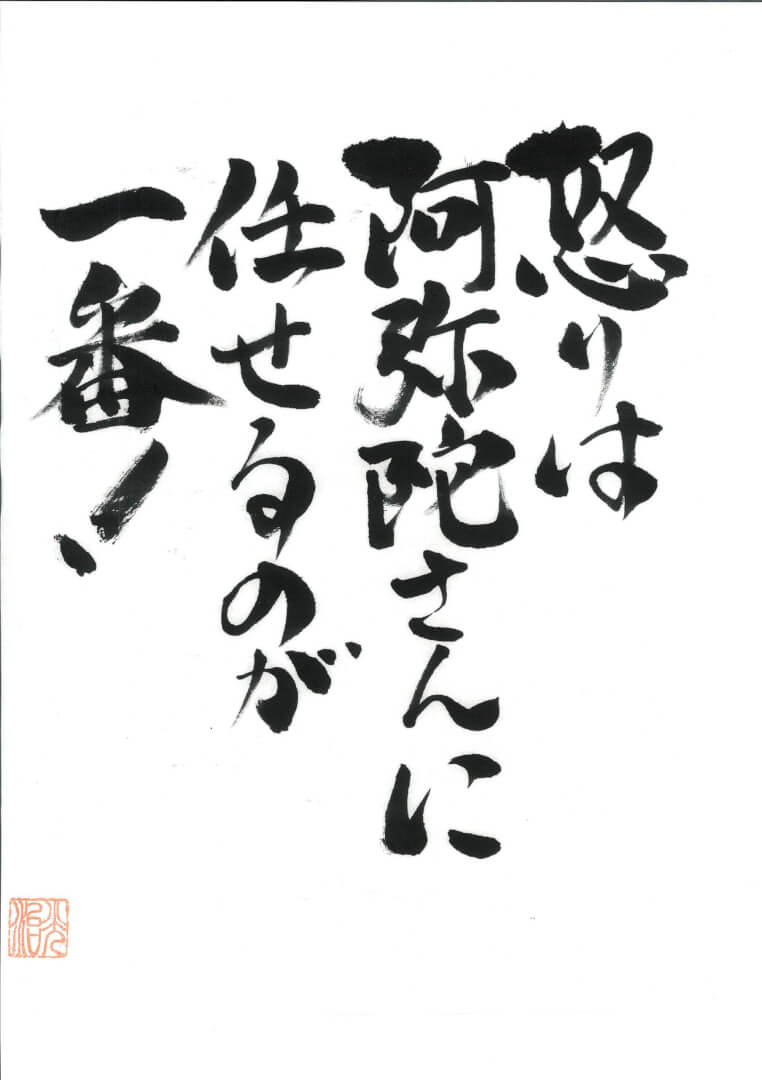 怒りは
阿弥陀さんに
任せるのが
一番!